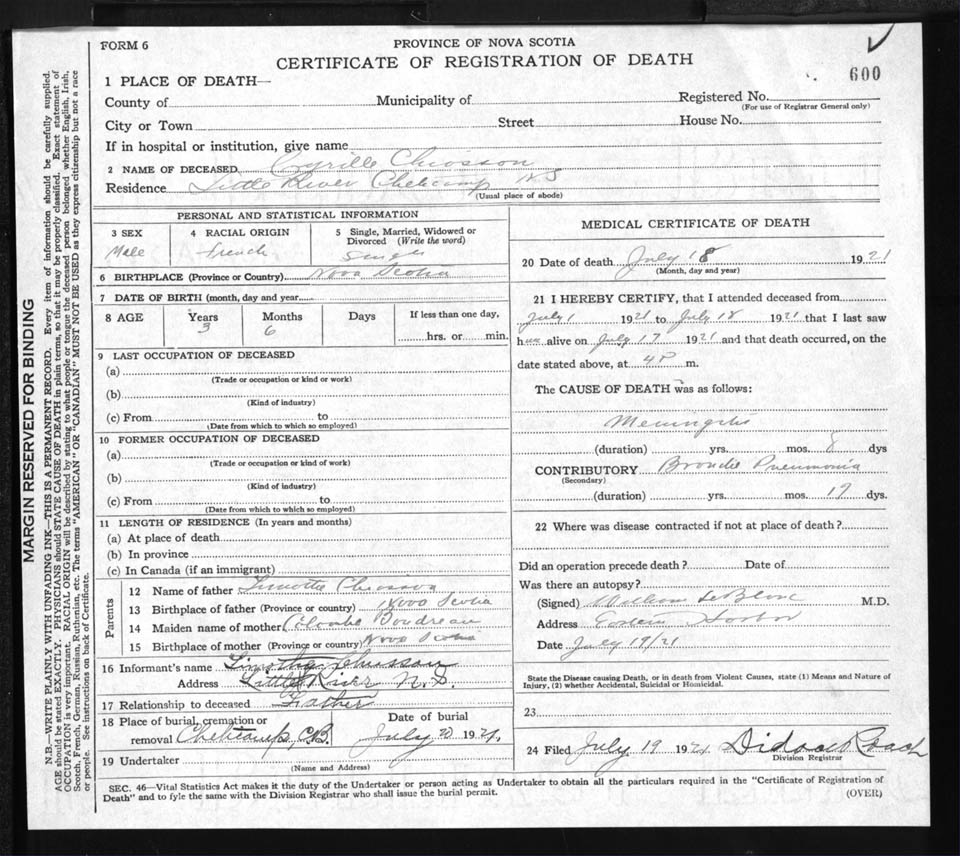 FORM 6
PROVINCE OF NOVA SCOTIA
CERTIFICATE OF REGISTRATION OF DEATH
600
1 PLACE OF DEATH—
County of Municipality of Registered No.
(For use of Registrar General only)
City or Town Street House No.
If in hospital or institution, give name
2 NAME OF DECEASED Cyrille Chiosson
Residence Little River Cheticamp NS
(Usual place of abode)
PERSONAL AND STATISTICAL INFORMATION
3 SEX 4 RACIAL ORIGIN 5 Single, Married, Widowed or Divorced (Write the word)
Male French Single
6 BIRTHPLACE (Province or Country) Nova Scotia
7 DATE OF BIRTH (month, day and year
8 AGE Years Months Days If less than one day,
3 6 hrs. or min.
9 LAST OCCUPATION OF DECEASED
(a)
(Trade or occupation or kind or work)
(b)
(Kind of industry)
(c) From to
(Date from which to which so employed)
10 FORMER OCCUPATION OF DECEASED
(a)
(Trade or occupation or kind of work)
(b)
(Kind of industry)
(c) From to
(Date from which to which so employed)
11 LENGTH OF RESIDENCE (In years and months)
(a) At place of death
(b) In province
(c) In Canada (if an immigrant)
Parents
12 Name of father Timothe Chiosson
13 Birthplace of father (Province or country) Nova Scotia
14 Maiden name of mother Boudreau
15 Birthplace of mother (Province or country) Nova Scotia
16 Informant's name Timothy Chiasson
Address Little River N.S.
17 Relationship to deceased Father
18 Place of burial, cremation or removal Cheticamp, C.B. Date of burial July 20 1921
19 Undertaker
(Name and Address)
MEDICAL CERTIFICATE OF DEATH
20 Date of death July 18 1921
(Month, day and year)
21 I HEREBY CERTIFY, that I attended deceased from
July 1 1921 to July 18 1921 that I last saw
him alive on July 17 1921 and that death occurred, on the
date stated above, at 4 P m.
The CAUSE OF DEATH was as follows:
Meningitis
(duration) yrs. mos. 8 dys
CONTRIBUTORY Broncho Pneumonia
(Secondary)
(duration) yrs. mos. 17 dys.
22 Where was disease contracted if not at place of death?
Did an operation precede death? Date of
Was there an autopsy?
(Signed) William LeBlanc M.D.
Address Eastern Harbor
Date July 19/21
State the Disease causing Death, or in death from Violent Causes, state (1) Means and Nature of
Injury, (2) whether Accidental, Suicidal or Homicidal.
23
24 Filed July 19 1921
Division Registrar
SEC. 46—Vital Statistics Act makes it the duty of the Undertaker or person acting as Undertaker to obtain all the particulars required in the "Certificate of Registration of
Death" and to fyle the same with the Division Registrar who shall issue the burial permit.
(OVER)
MARGIN RESERVED FOR BINDING
N.B.—WRITE PLAINLY WITH UNFADING INK—THIS IS A PERMANENT RECORD. Every item of information should be carefully supplied.
AGE should be stated EXACTLY. PHYSICIANS should STATE CAUSE OF DEATH in plain terms, so that it may be properly classified. Exact statement of
OCCUPATION is very important. RACIAL ORIGIN will be described by stating to what people or tongue the deceased person belonged whether English, Irish,
Scotch, French, German, Russian, Ruthenian, etc. The terms "AMERICAN" OR "CANADIAN" MUST NOT BE USED as they express citizenship but not a race
or people. See instructions on back of Certificate.